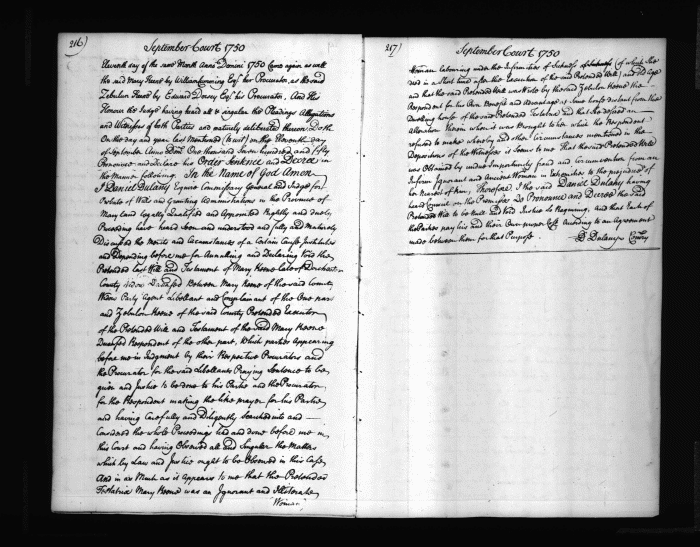 216)
September Court 1750
Eleventh day of the same Month Anno Domini 1750 Came again as well
the said Mary Keene by William Cumming Esqr. his Procurator, as the said
Zebulon Keene by Edward Dorsey Esqr. his Procurator, And His
Honour the Judge having heard all & singular the Pleadings Allegations
and Witnesses of both Parties and maturely deliberated thereon Doth
On the day and year last Mentioned (to wit) on the Eleventh day
of September Anno Dom. One thousand Seven hundred and fifty
Pronounce and declare his Order Sentence and Decree in
the Manner following. In the Name of God Amen
I Daniel Dulany Esquire Commissary General and Judge for
Probate of Wills and Granting Administrations in the Province of
Maryland legally Qualified and Appointed Rightly and duly
Proceeding have heard seen and understood and fully and Maturely
Discussed the Merits and Circumstances of a Certain Cause Instituted
and Depending before me for Annulling and Declaring Void the
Pretended last Will and Testament of Mary Keene late of Dorchester
County Widow Deceased Between Mary Keene of the said County
Widow Party Agent Libellant and Complainant of the One part
and Zebulon Keene of the said County Pretended Executor
of the Pretended Will and Testament of the said Mary Keene
Deceased Respondent of the other part, Which parties appearing
before me in Judgment by their Respective Procurators and
the Procurator for the said Libellants Praying Sentence to be
given and Justice to be done to his Partie and the Procurator
for the Respondent making the like prayer for his Partie
and having Carefully and Diligently Searched into and
Considered the whole Proceedings had and done before me in
this Court and having Observed all and Singular the Matters
which by Law and Justice ought to be Observed in this Case
And in as Much as it appears to me that the Pretended
Testatrix Mary Keene was an Ignorant and Illiterate
Woman
217)
September Court 1750
Woman Labouring under the Infirmities of Sickness (of which She
died in a Short time after the Execution of the said Pretended Will) and Old Age
and that the said Pretended Will was Wrote by the said Zebulon Keene the
Respondent for his Own Benefit and Advantage at some house distant from the
dwelling house of the said Pretended Testatrix and that the
alteration therein when it was Brought to her which the Respondent
refused to make whereby and other Circumstances mentioned in the
Depositions of the Witnesses it seems to me That the said Pretended Will
was Obtained by undue Importunity fraud and Circumvention from an
Infirm Ignorant and Ancient Woman to the prejudice of
her Nearest of Kin, Therefore I the said Daniel Dulany having
heard Council in the Premisses Do Pronounce and Decree the said
Pretended Will to be Null and Void Justice so Requiring, and that Each of
the Parties pay his and their Own proper Costs According to an Agreement
made between them for that Purpose
D Dulany Comry